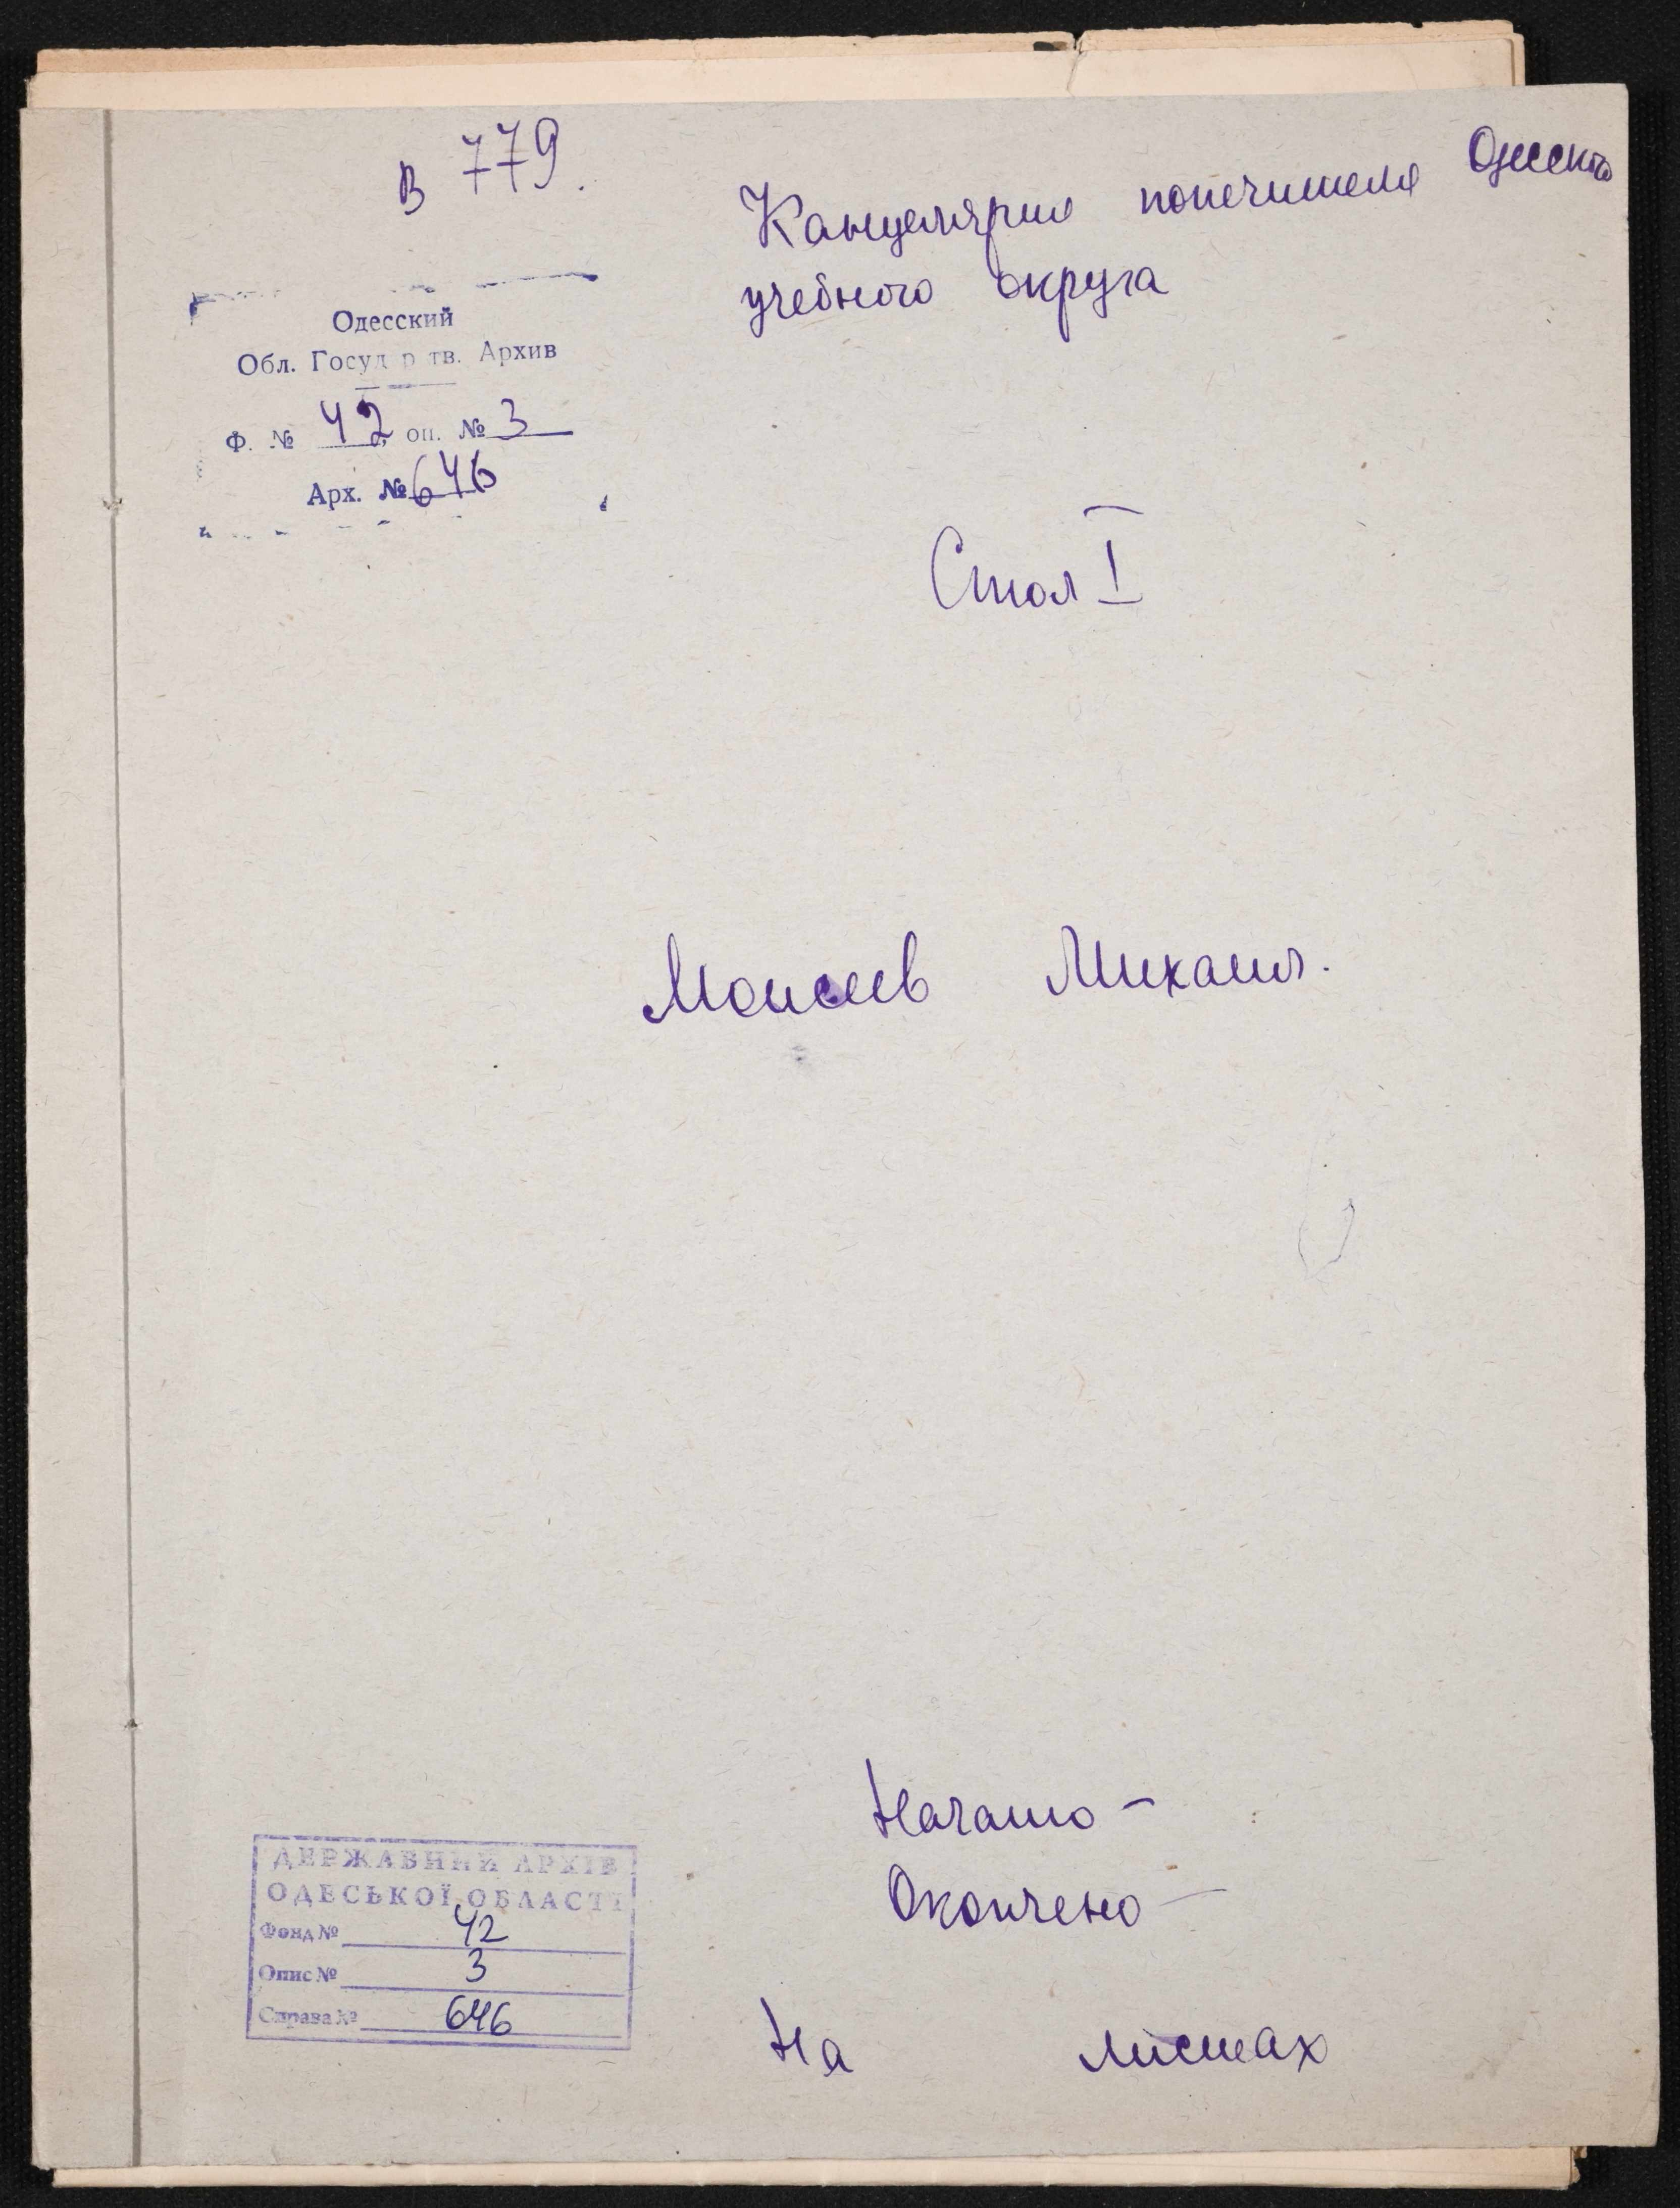 в 779.
Канцелярия попечителя Одесского
учебного округа
Одесский
Обл. Госуд р тв. Архив
Ф. № 42, оп. № 3
Арх. № 646
Стол I
Моисеев Михаил.
Начато -
Окончено -
ДЕРЖАВНИЙ АРХІВ
ОДЕСЬКОЇ ОБЛАСТІ
Фонд № 42
Опис № 3
Справа № 646
На листах